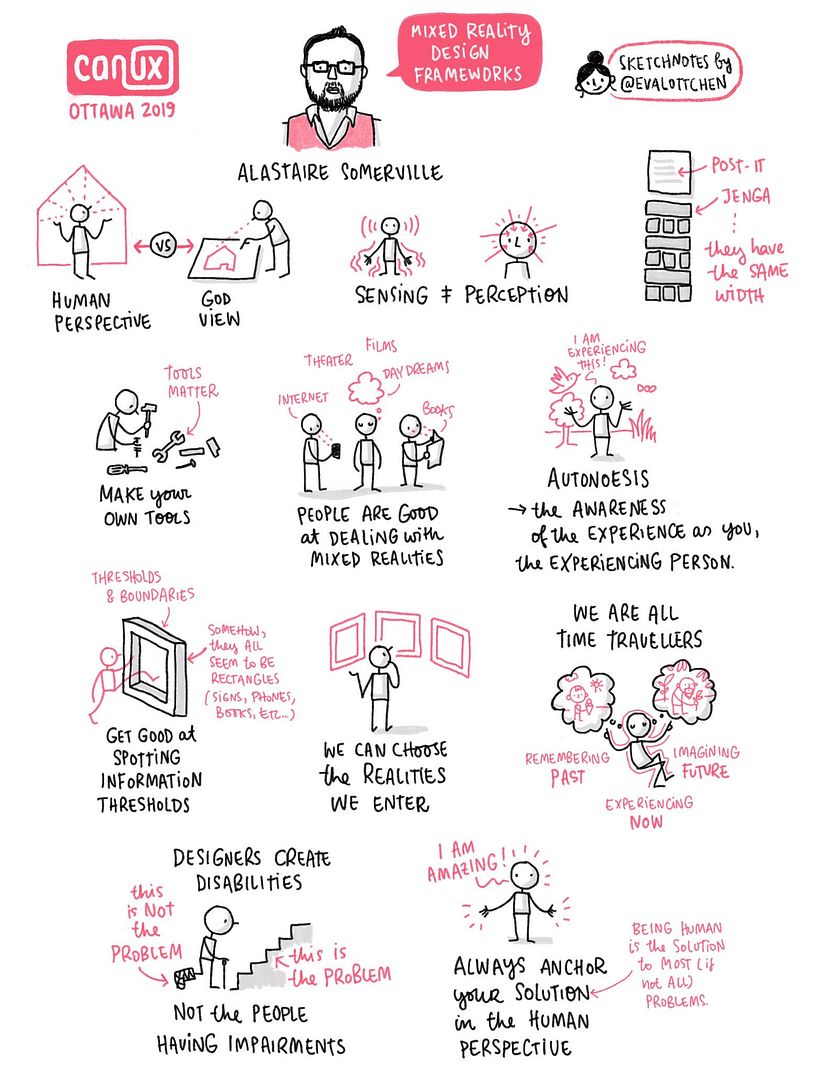 canUX
OTTAWA 2019
MIXED REALITY
DESIGN
FRAMEWORKS
SKETCHNOTES by
@EVALOTTCHEN
ALASTAIRE SOMERVILLE
VS
HUMAN
PERSPECTIVE
GOD
VIEW
SENSING ≠ PERCEPTION
POST-IT
JENGA
they have
the SAME
WIDTH
TOOLS
MATTER
MAKE your
OWN TOOLS
INTERNET
THEATER
FILMS
DAY DREAMS
BOOKS
PEOPLE ARE GOOD
at DEALING with
MIXED REALITIES
I AM
EXPERIENCING
THIS!
AUTONOESIS
→ the AWARENESS
of the EXPERIENCE as YOU,
the EXPERIENCING PERSON.
THRESHOLDS
& BOUNDARIES
SOMEHOW,
they ALL
SEEM to BE
RECTANGLES
(SIGNS, PHONES,
BOOKS, ETC...)
GET GOOD at
SPOTTING
INFORMATION
THRESHOLDS
WE CAN CHOOSE
the REALITIES
WE ENTER
WE ARE ALL
TIME TRAVELLERS
REMEMBERING
PAST
IMAGINING
FUTURE
EXPERIENCING
NOW
DESIGNERS CREATE
DISABILITIES
this
is NOT
the
PROBLEM
this is
the PROBLEM
NOT the PEOPLE
HAVING IMPAIRMENTS
I AM
AMAZING!
ALWAYS ANCHOR
your SOLUTION
in the HUMAN
PERSPECTIVE
BEING HUMAN
is the SOLUTION
to MOST (if
not ALL)
PROBLEMS.